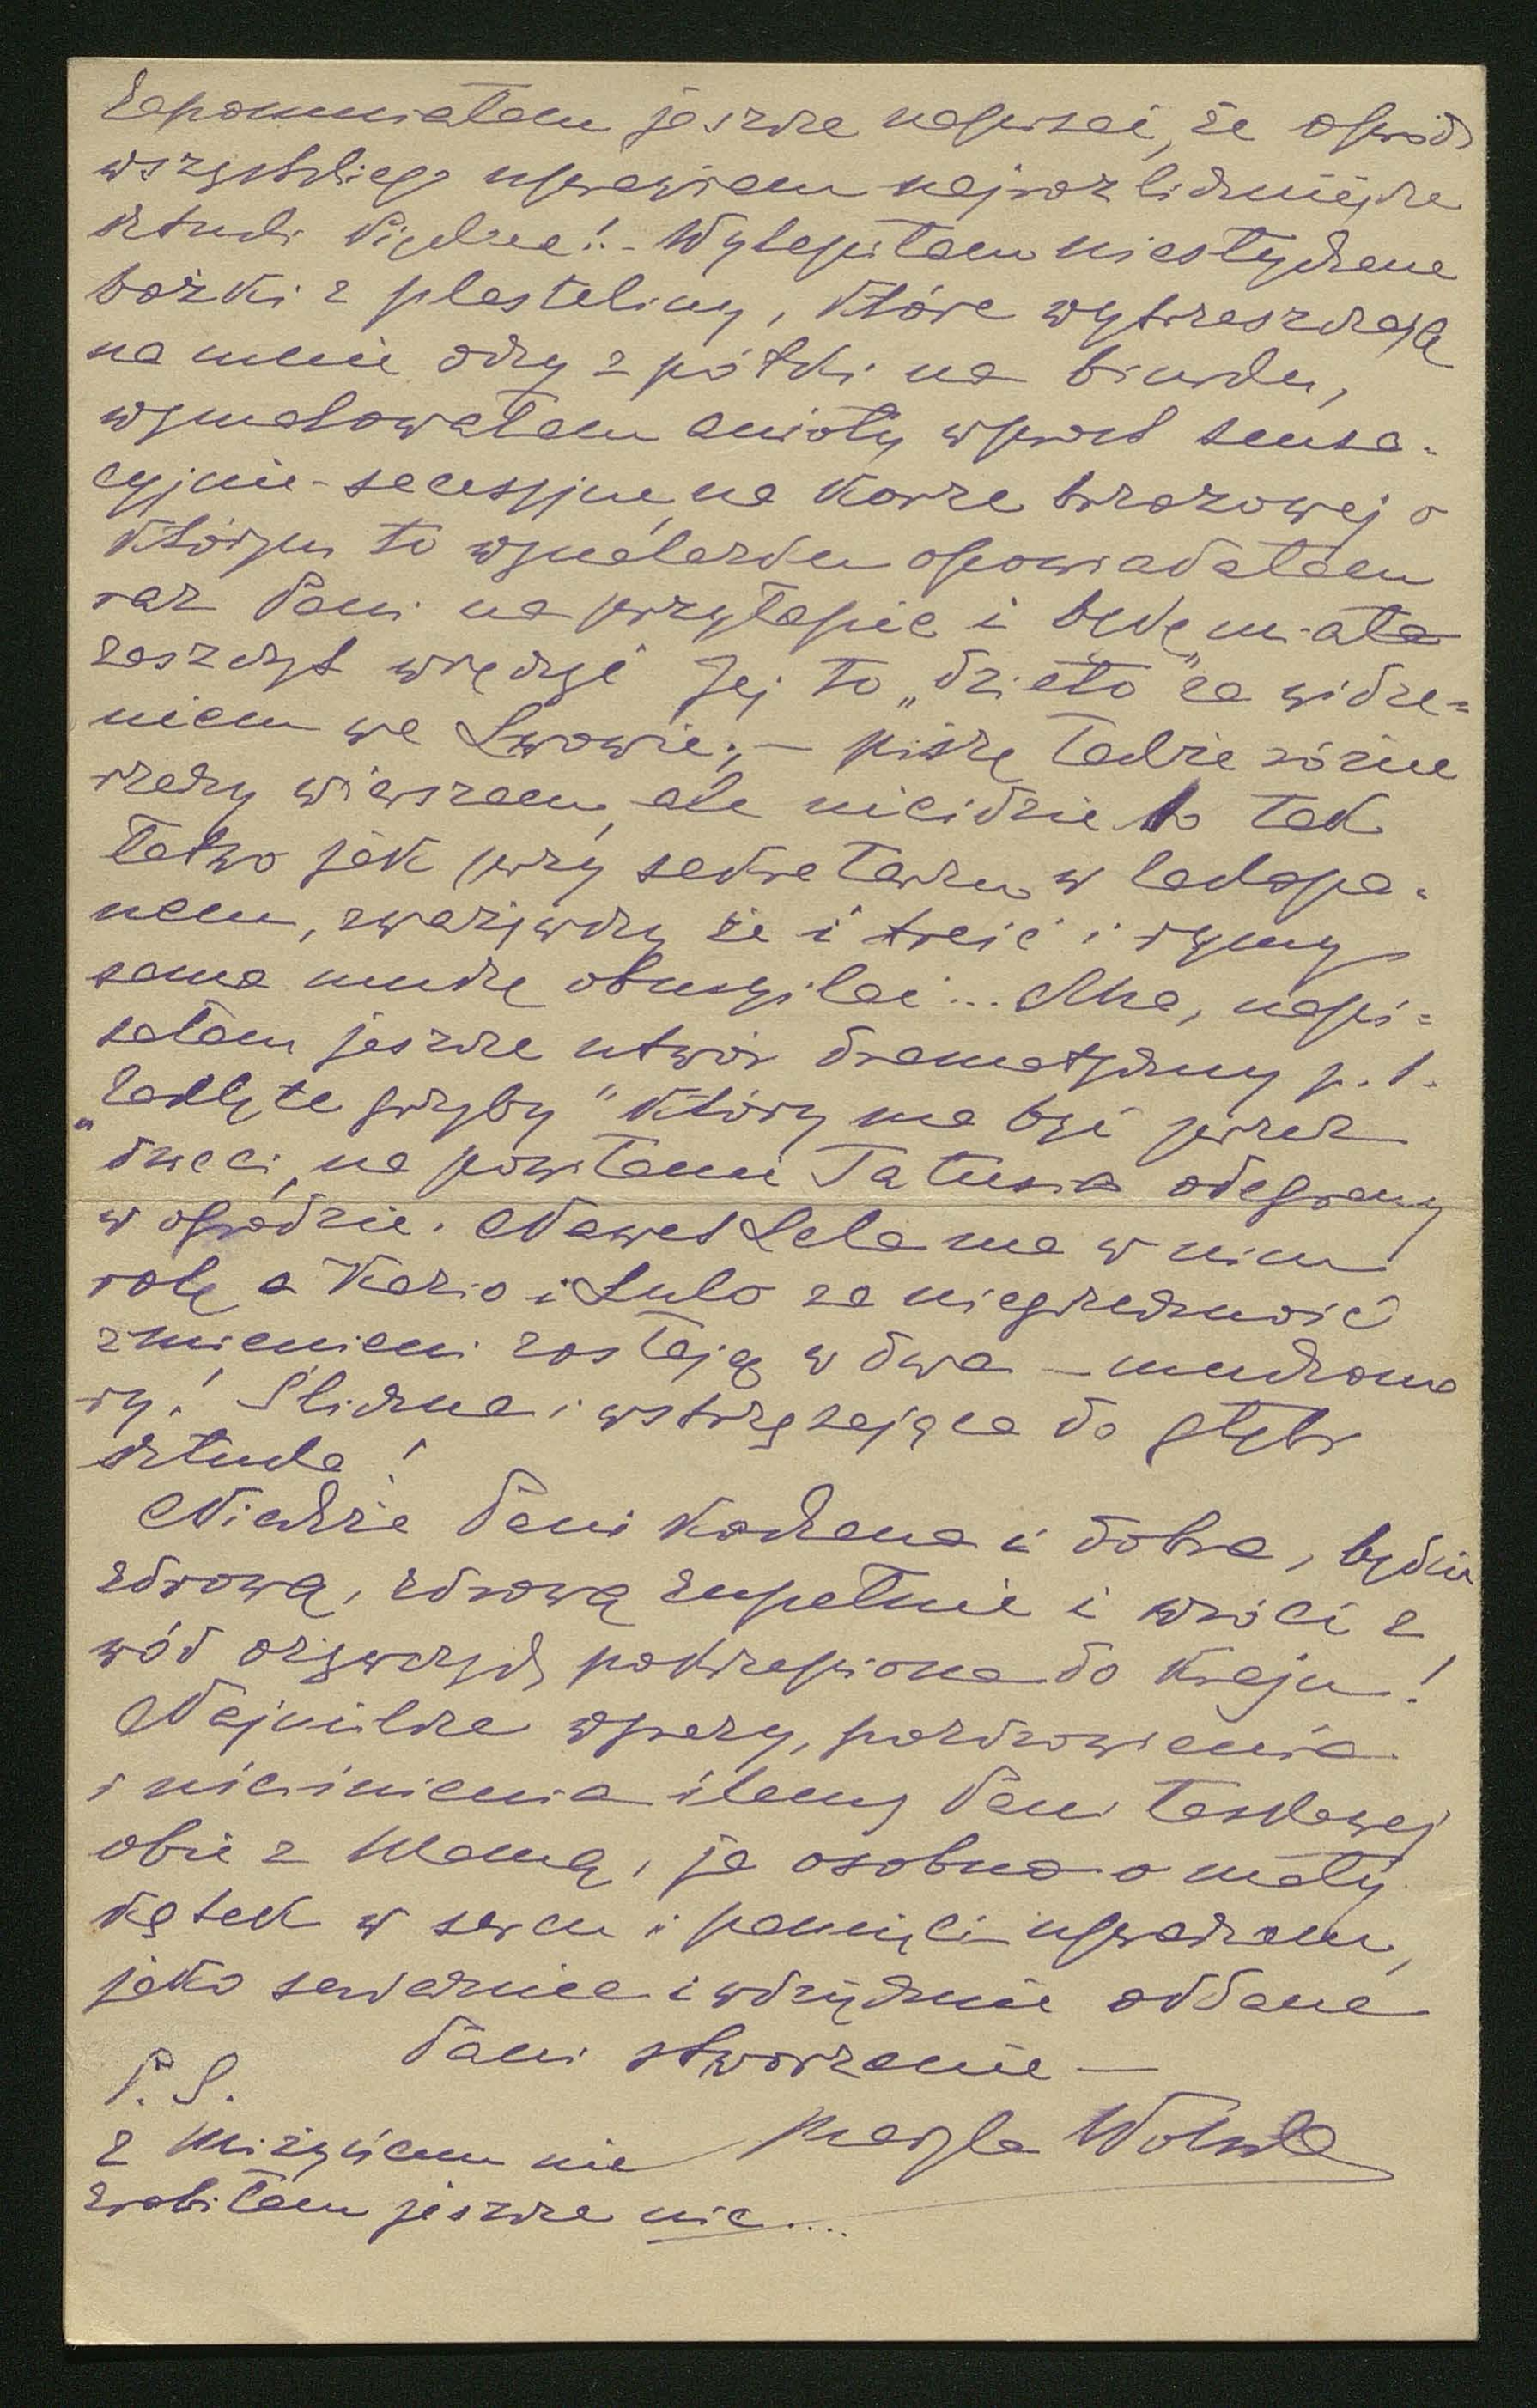 Zapomniałam jeszcze napisać, że oprócz
wszystkiego uprawiam najrozliczniejsze
sztuki piękne! - Wylepiłam niesłychane
bożki z plasteliny, które wytrzeszczają
na mnie oczy z półki na biurku,
wymalowałam anioły wprost sensa-
cyjnie-secesyjne na korze brzozowej o
którym to wynalazku opowiadałam
raz Pani na przyłapie i będę miała
zaszczyt wręczyć Jej to „dzieło" za widze-
niem we Lwowie; — piszę także różne
rzeczy wierszem, ale nie idzie to tak
łatwo jak przy sekretarzu w Zakopa-
nem, zważywszy że i treść i rymy
sama muszę obmyślać... Aha, napi-
sałam jeszcze utwór dramatyczny p.t.
„Zaklęte grzyby" który ma być przez
dzieci, na powitanie Tatusia odegrany
w ogrodzie. Nawet Lela ma w nim
rolę a Kazio i Lulo za niegrzeczność
zmienieni zostają w dwa — muchomo
ry! Śliczna i wstrząsająca do głębi
sztuka!
Niechże Pani kochana i dobra, będzie
zdrową, zdrową zupełnie i wróci z
wód ożywczych pokrzepiona do kraju!
Najmilsze wyrazy, pozdrowienia
i uściśnienia ślemy Pani łaskawej
obie z Mamą, ja osobno o mały
kątek w sercu i pamięci upraszam,
jako serdecznie i wdzięcznie oddane
Pani stworzenie —
Maryla Wolska
P. S.
z Miżyńcem nie
zrobiłam jeszcze nic....